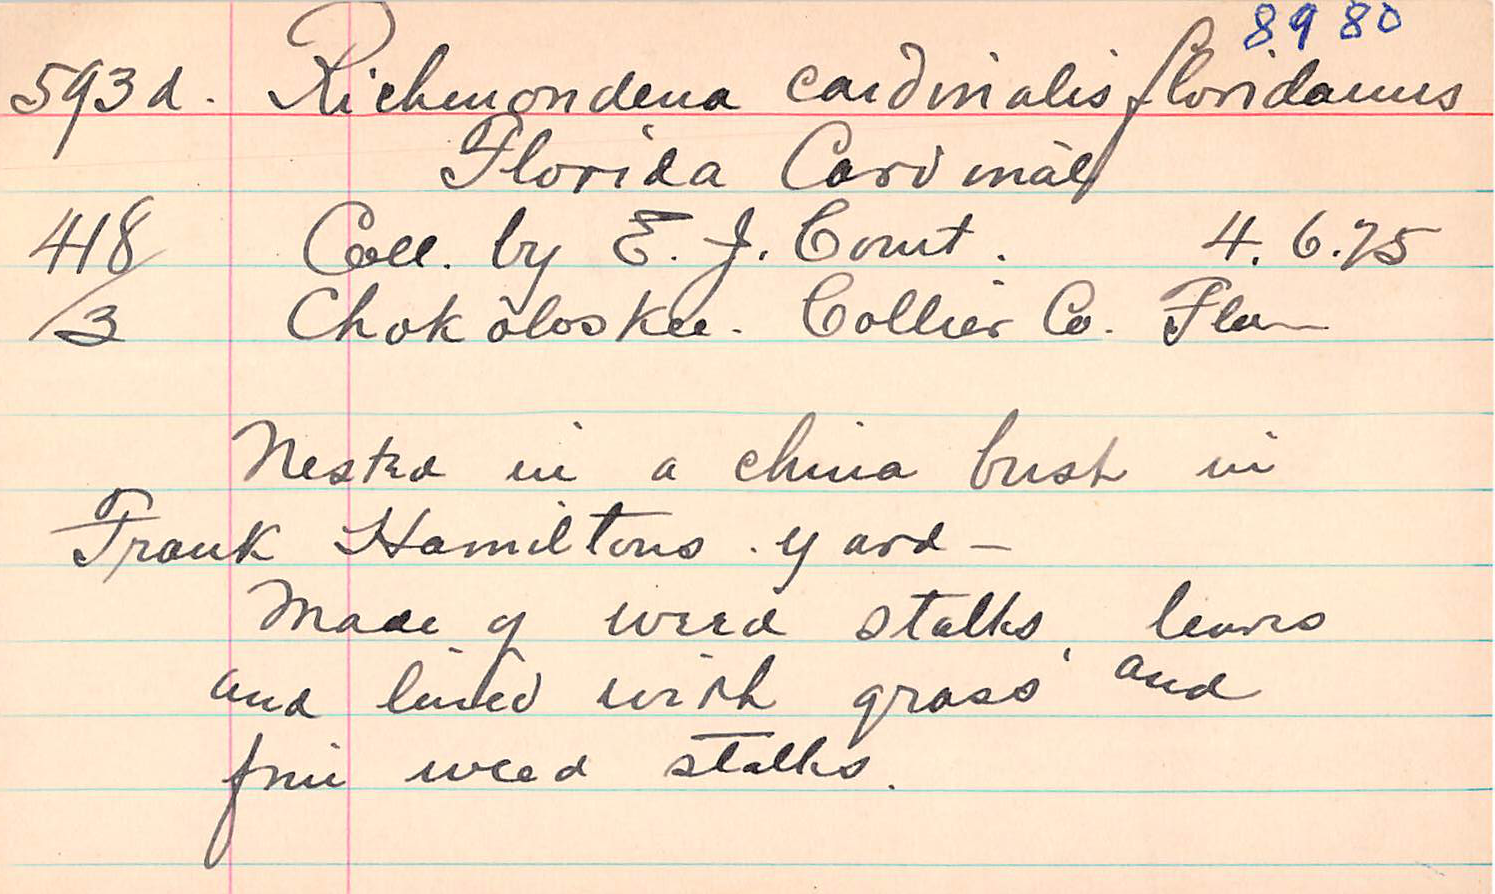 8980
593d. Richmondena cardinalis floridanus
Florida Cardinal
418/3 Coll. by E. J. Court. 4.6.25
Chokoloskee. Collier Co. Fla
Nested in a china bush in
Frank Hamiltons yard —
Made of weed stalks, leaves
and lined with grass and
fine weed stalks.